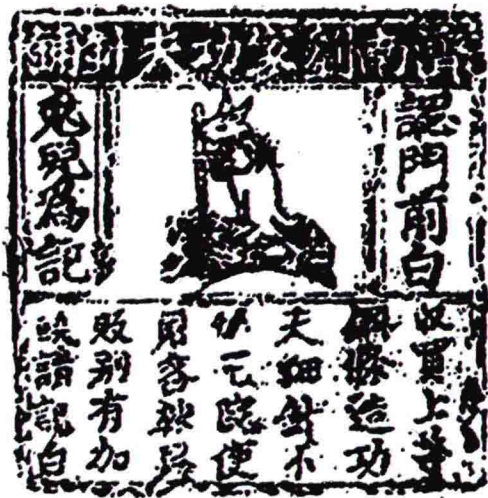 濟南劉家功夫針鋪
認門前白
兔兒爲記
收買上等
鋼條造功
夫細針不
宅院使
客轉
販別有加
饒請記白